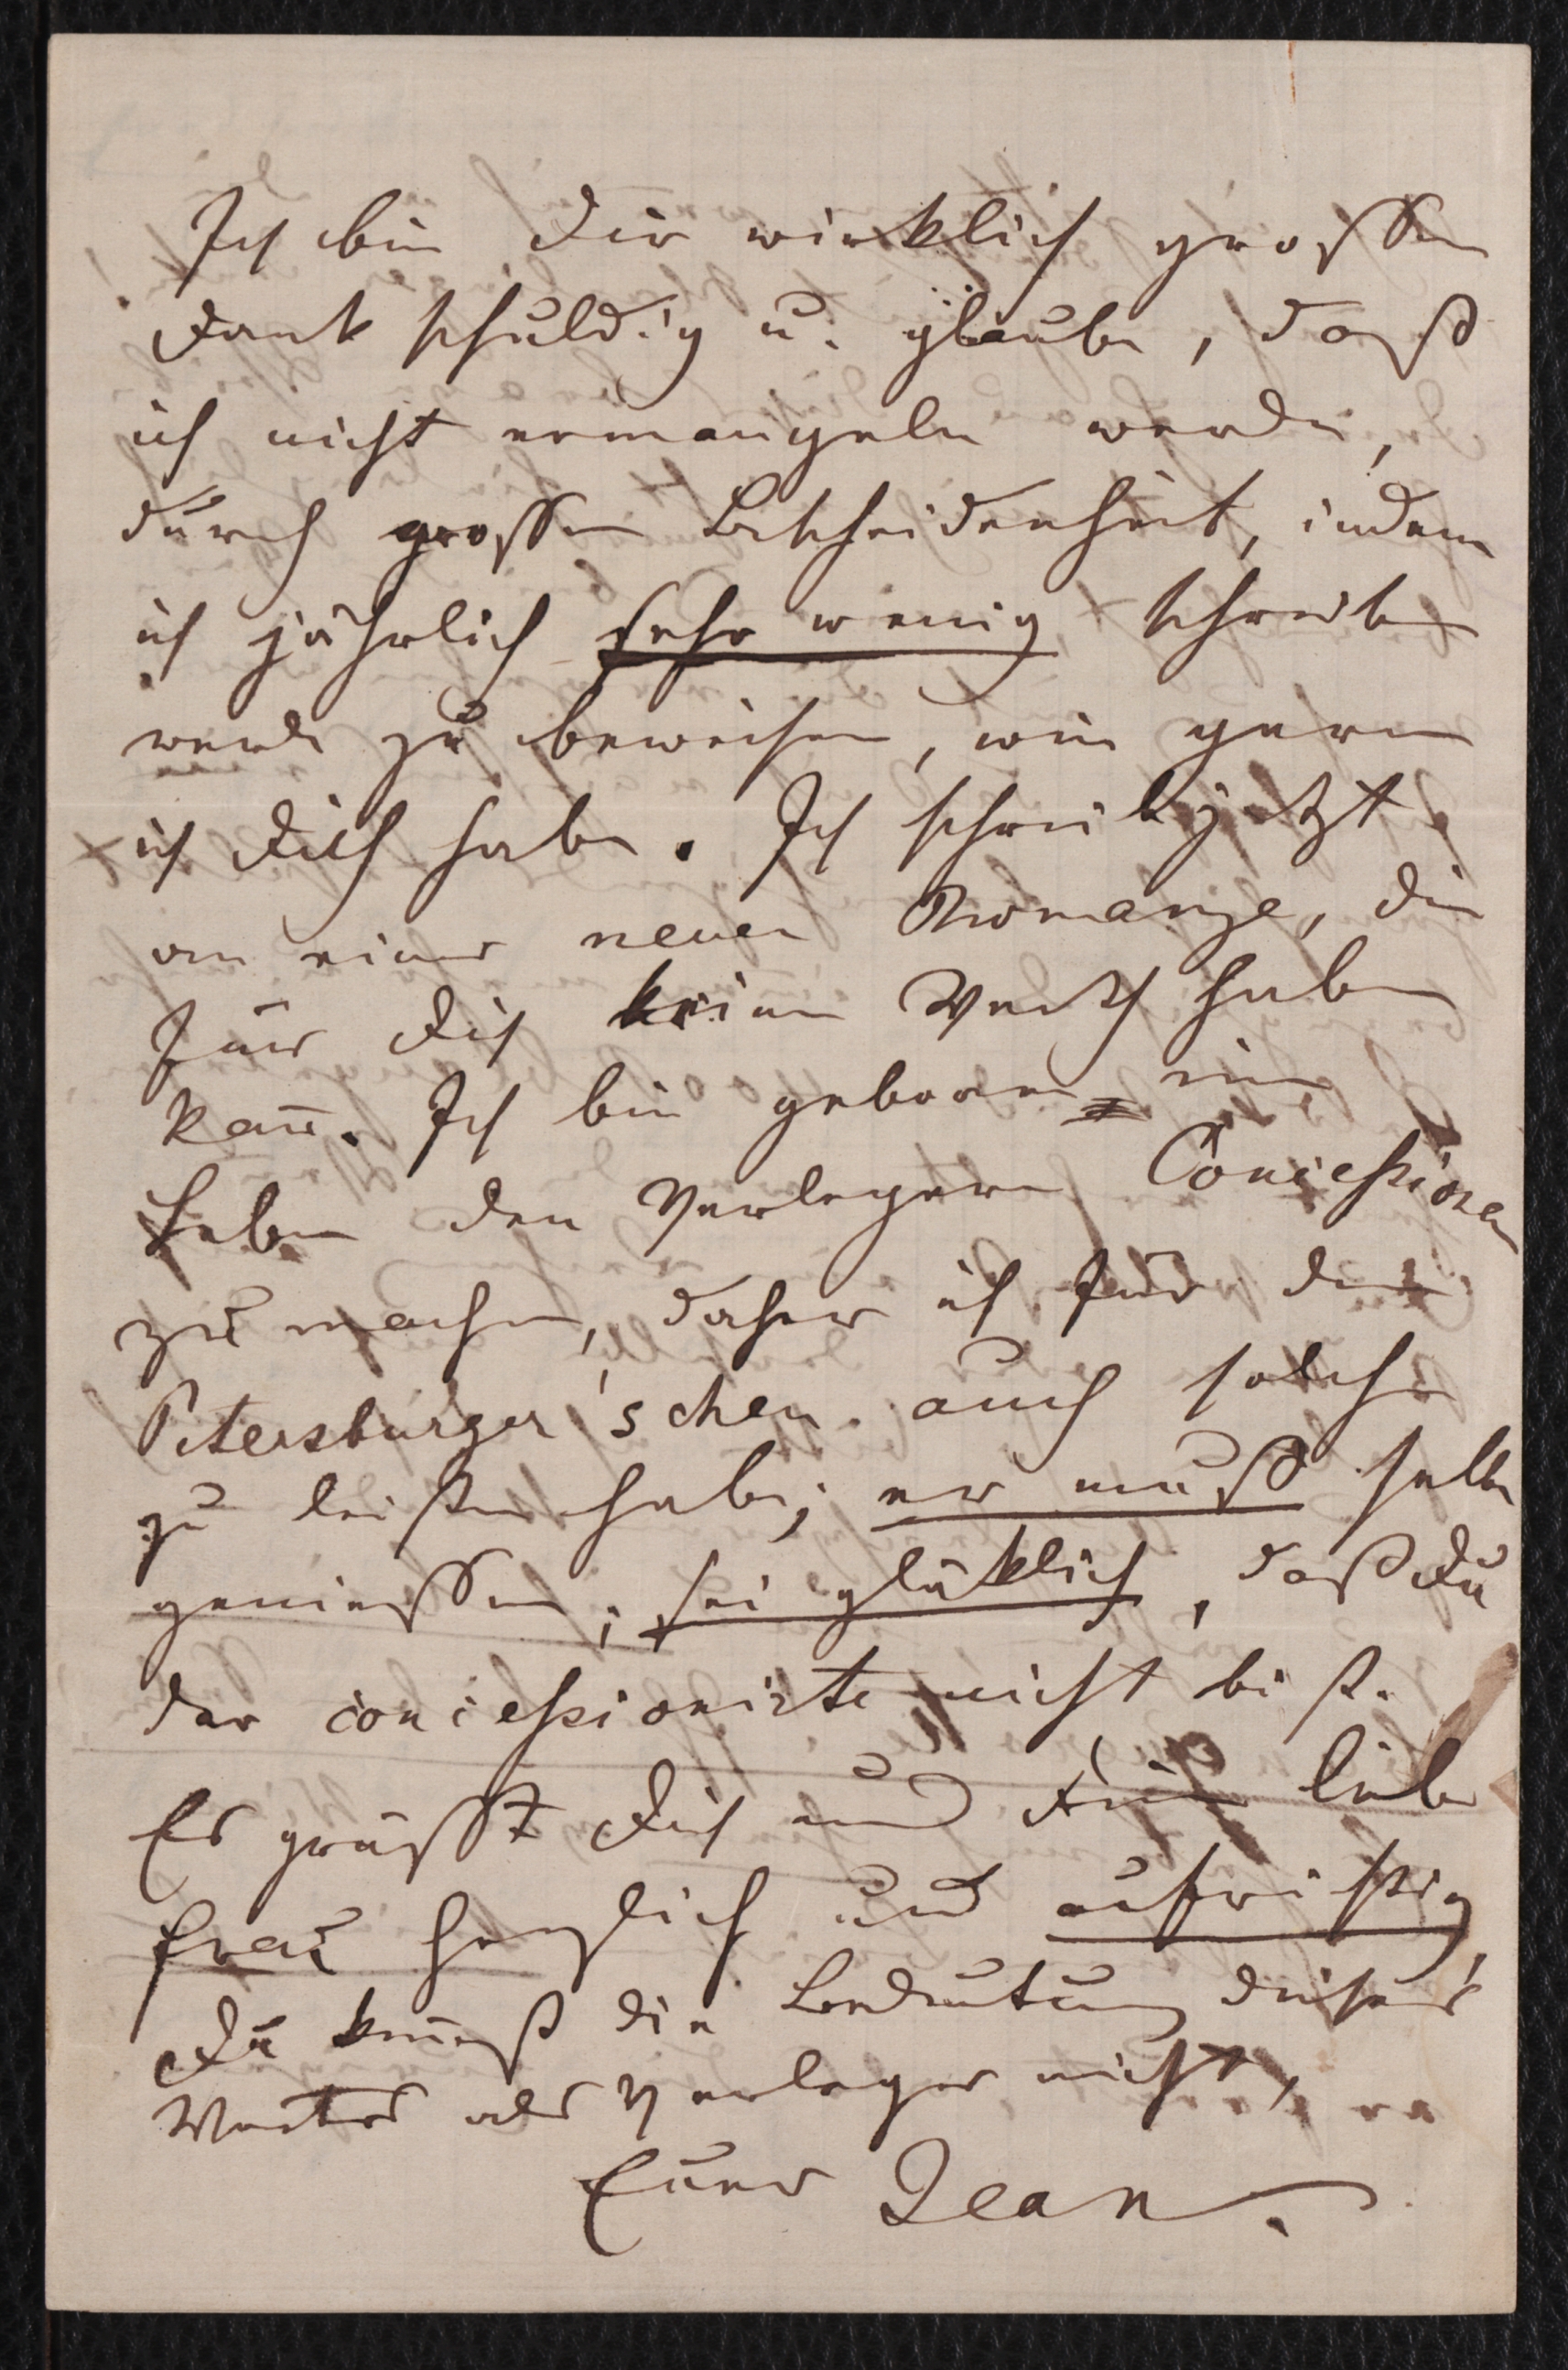 Ich bin Dir wirklich großen
Dank schuldig u. glaube, daß
ich nicht ermangeln werde,
durch grosse Bescheidenheit, indem
ich jährlich sehr wenig schreiben
werde zu beweisen, wie gern
ich Dich habe. Ich schreibe jetzt
an einer neuen Romanze, die
für Dich keinen Werth haben
kann. Ich bin geboren im
Leben den Verlegern Concessionen
zu machen, daher ich für den
Petersburger'schen auch solche
zu leisten habe; er muß selbe
geniessen; sei glücklich, daß Du
der concessionirte nicht bist.
Es grüsst Dich und Deine liebe
Frau herzlich und aufrichtig,
Du kennst die Bedeutung dieses
Wortes als Verleger nicht,
Euer Jean.